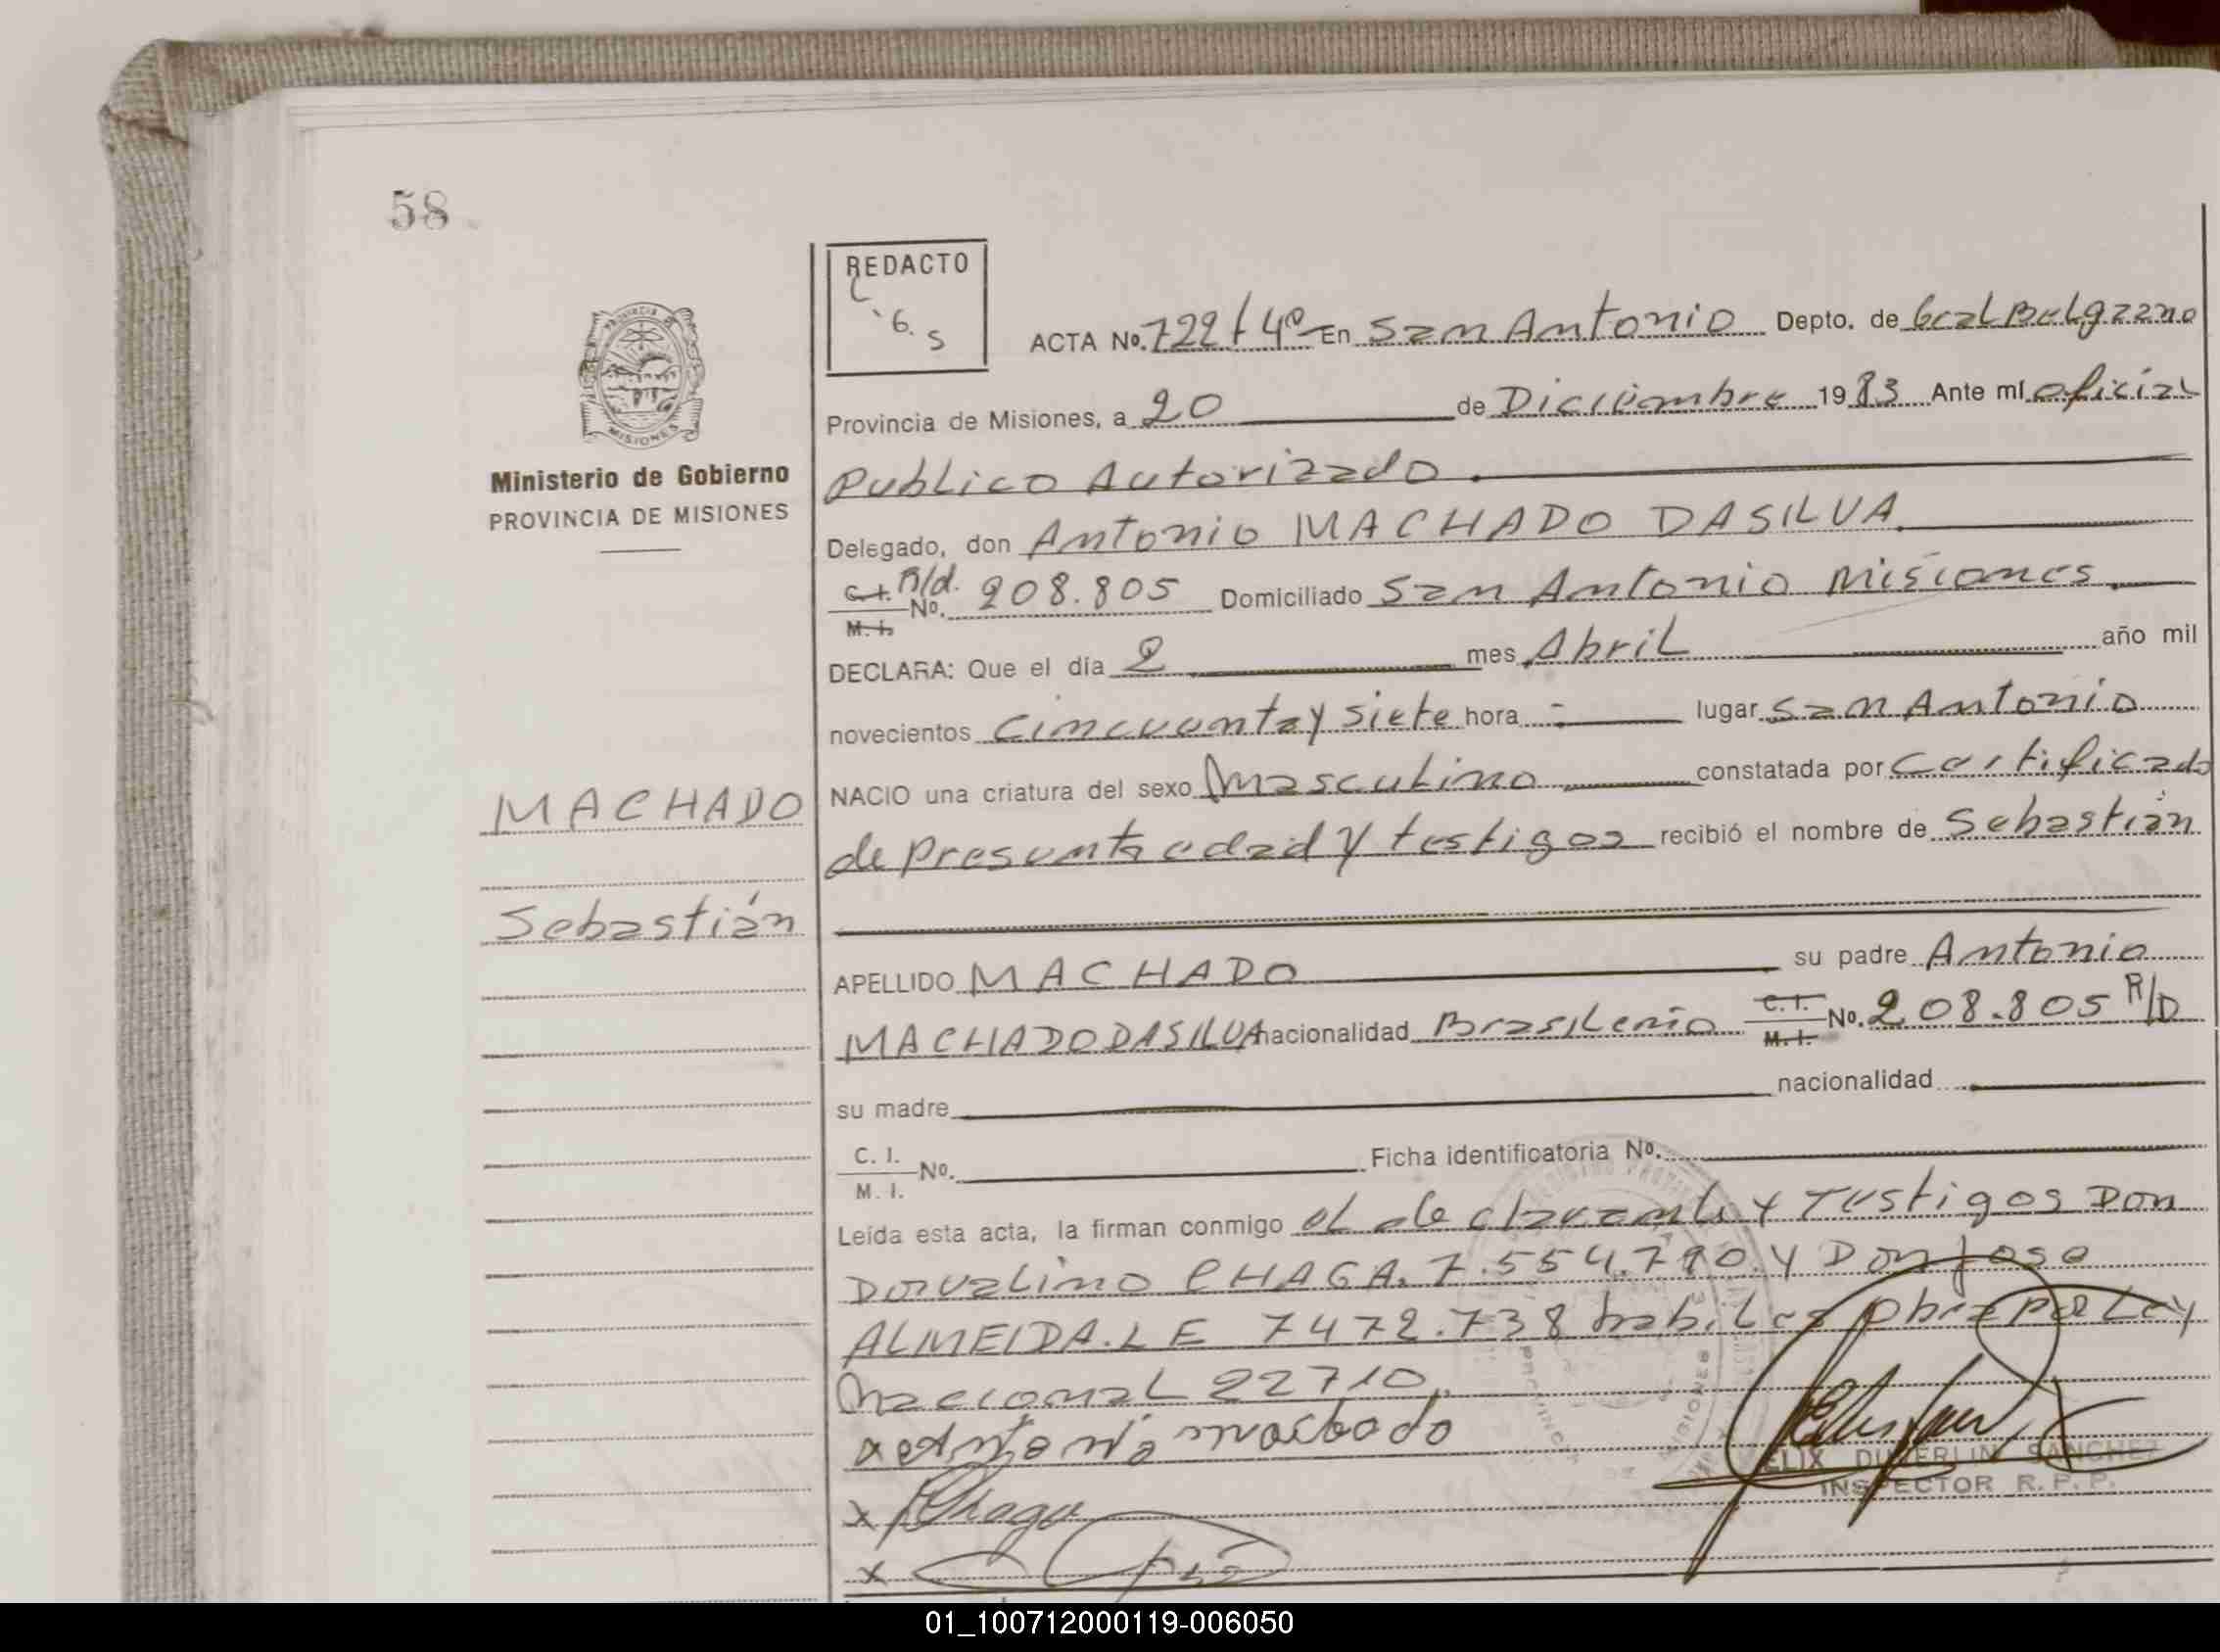 58
REDACTO
6.
S
ACTA No. 722 / 4º En San Antonio Depto. de Gral Belgrano
Provincia de Misiones, a 20 de Diciembre 1983 Ante mí oficial
Publico Autorizado.
MISIONES
Ministerio de Gobierno
PROVINCIA DE MISIONES
Delegado, don Antonio MACHADO DASILVA.
C.I. M.I. R/d. No. 208.805 Domiciliado San Antonio Misiones.
DECLARA: Que el día 2 mes Abril año mil
novecientos Cincuenta y siete hora - lugar San Antonio
NACIO una criatura del sexo Masculino constatada por Certificado
de presunta edad y testigos recibió el nombre de Sebastián
MACHADO
Sebastián
APELLIDO MACHADO su padre Antonio
MACHADO DASILVA nacionalidad Brasileño C.I. M.I. No. 208.805 R/D
su madre nacionalidad
C. I. M. I. No. Ficha identificatoria No.
Leída esta acta, la firman conmigo el declarante y Testigos Don
Dorvalino CHAGA. 7.554.790. y Don Jose
ALMEIDA. L E 7472.738 habiles Obra por Ley
Nacional 22710.
x Antonio machado
x Chaga
x
FELIX DUVERLIN SANCHEZ
INSPECTOR R. P. P.
01_100712000119-006050